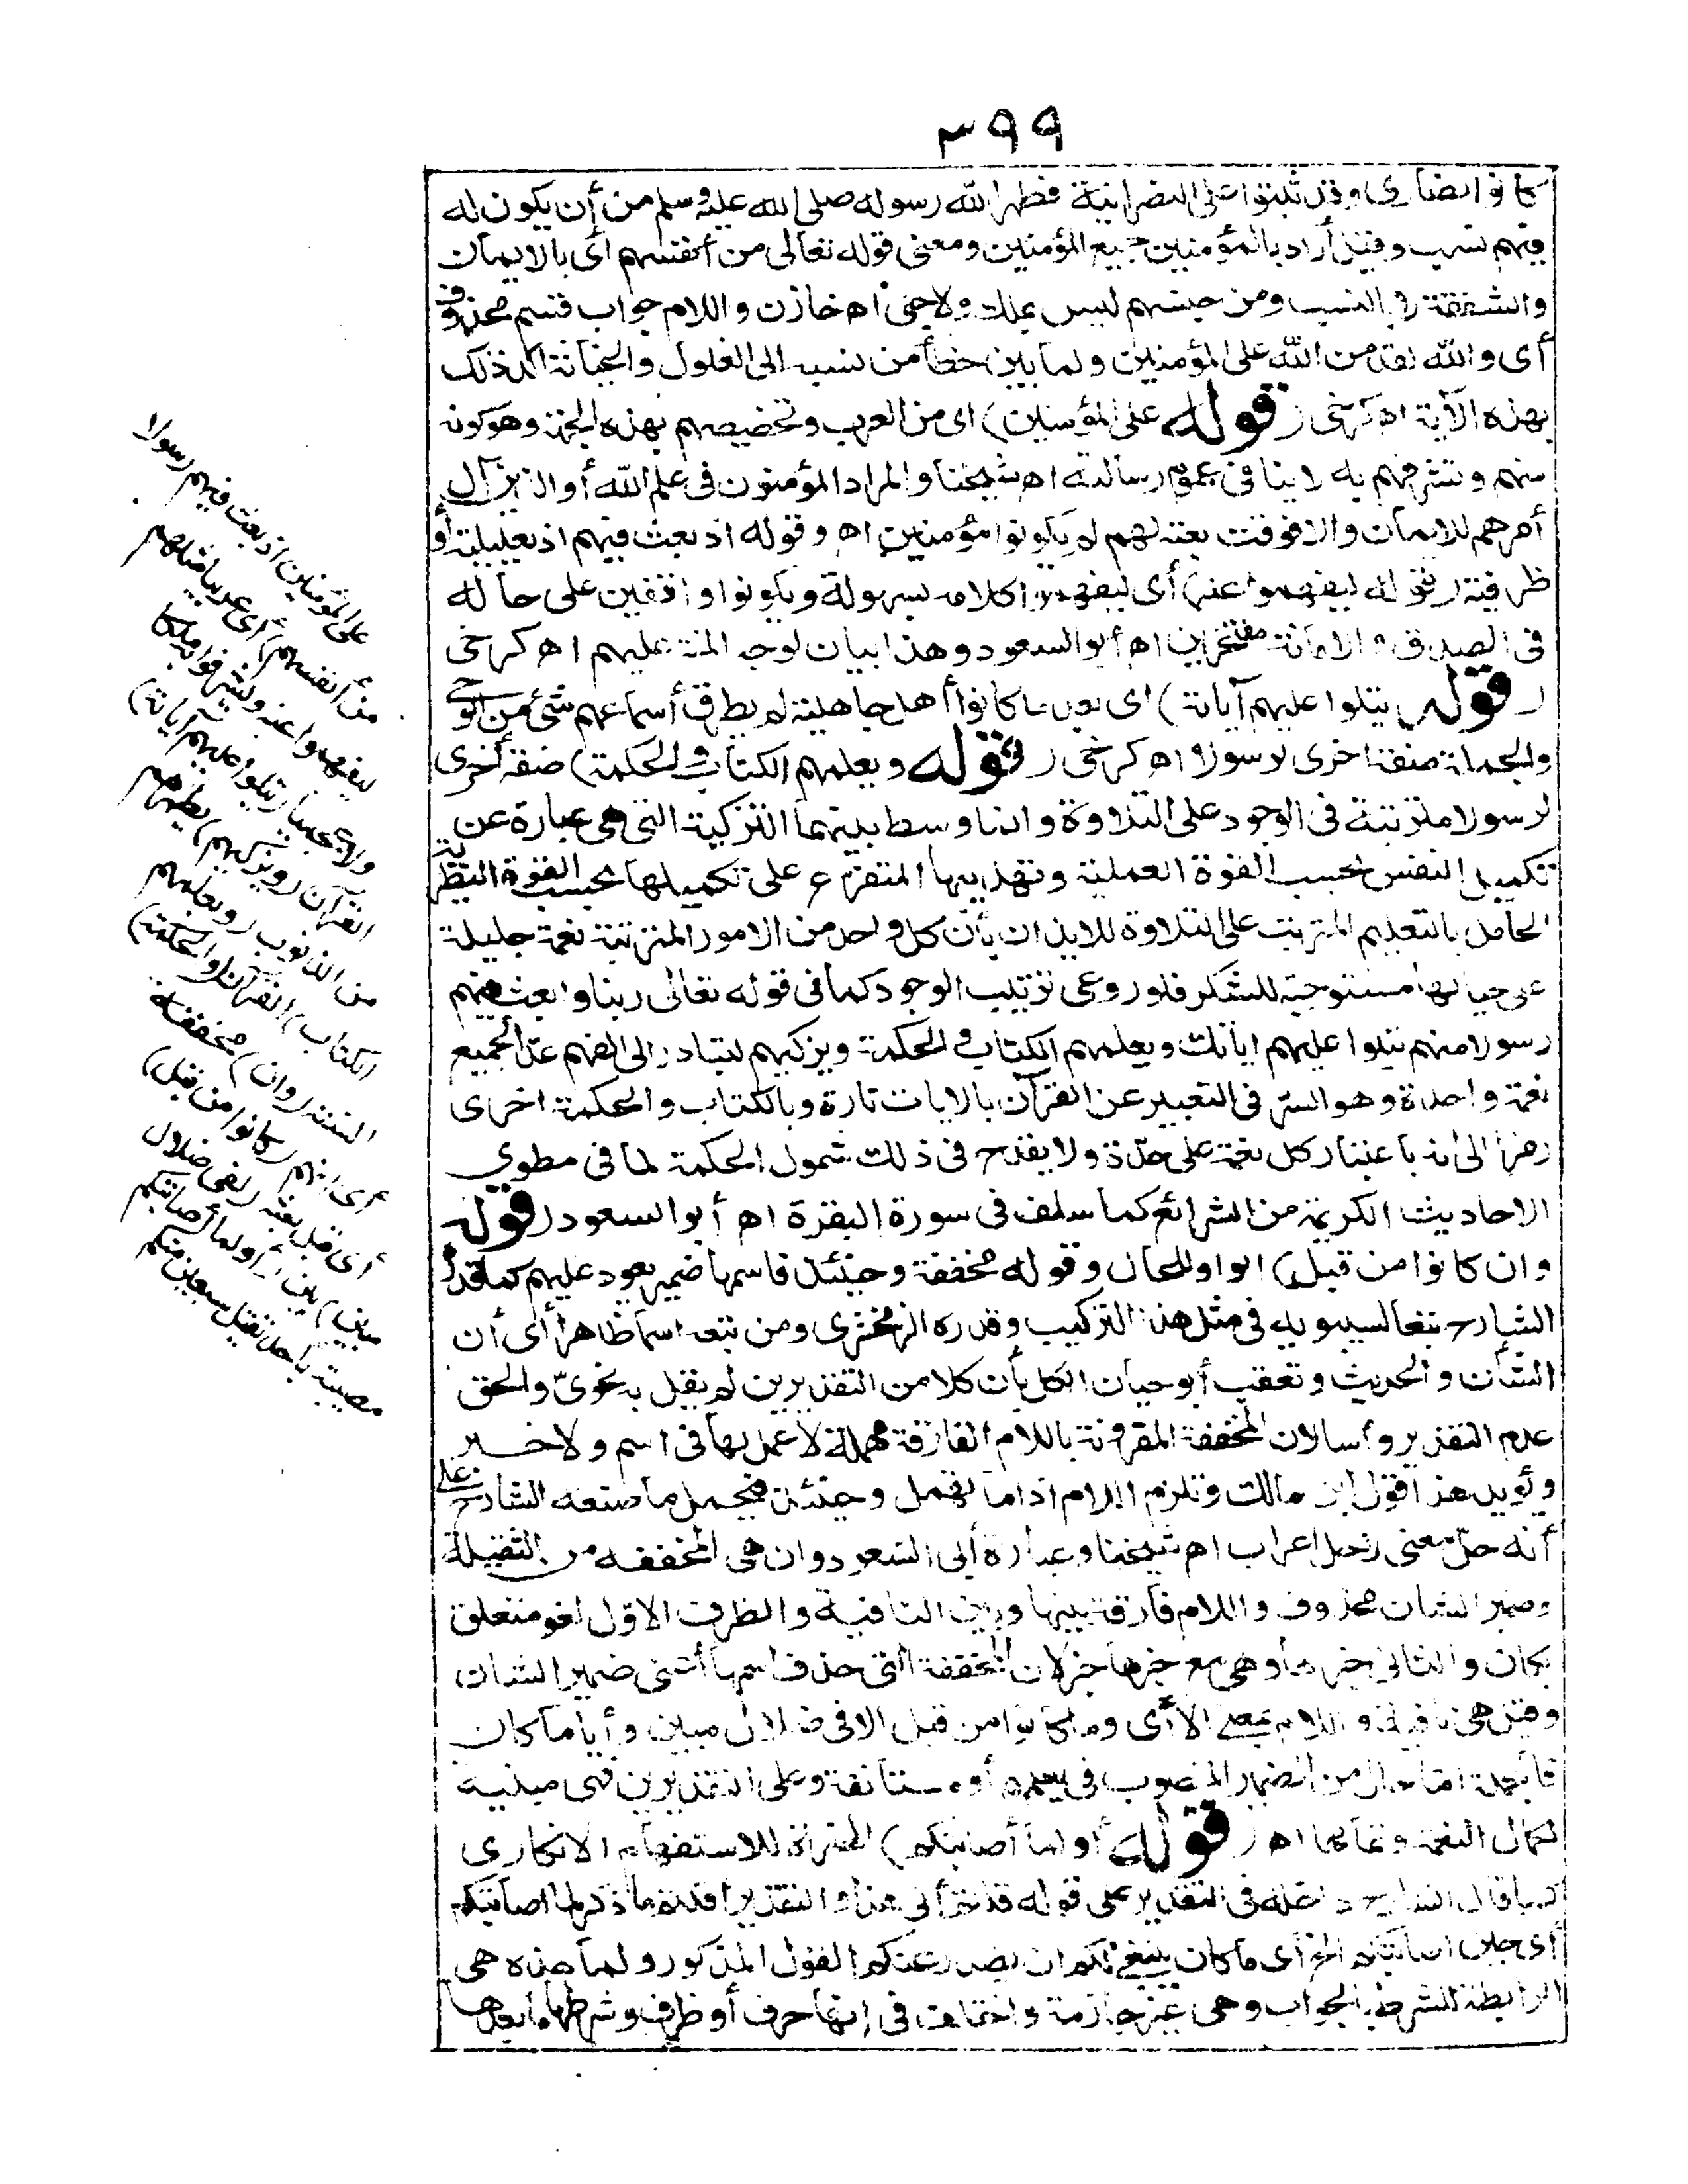 ٣٩٩
كانوا نصارى وقد ثبتوا على النصرانية فطهر الله رسوله صلى الله عليه وسلم من أن يكون له
فيهم نسب وقيل أراد بالمؤمنين جميع المؤمنين ومعنى قوله تعالى من أنفسهم أى بالايمان
والشفقة لا بالنسب ومن جنسهم ليس بملك ولاجنى اه خازن واللام جواب قسم محذوف
أى والله لقد من الله على المؤمنين ولما بين خطأ من نسبه الى الغلول والخيانة اكد ذلك
بهذه الآية اه كرخى (قوله على المؤمنين) اى من العرب وتخصيصهم بهذه الجمة وهو كونه
منهم وتشرفهم به لاينافى عموم رسالته اه شيخنا والمراد المؤمنون فى علم الله أو الذين آل
أمرهم للايمان والا فوقت بعثه لهم لم يكونوا مؤمنين اه وقوله اذ بعث فيهم اذ تعليلية أو
ظرفية (قوله ليفهموا عنه) أى ليفهموا كلامه بسهولة ويكونوا واقفين على حاله
فى الصدق والامانة مفتخرين به اه أبو السعود وهذا بيان لوجه المنة عليهم اه كرخى
(قوله يتلوا عليهم آياته) اى بعد ما كانوا أهل جاهلية لم يطرق أسماعهم شئ من الوحى
والجملة صفة اخرى لرسولا اه كرخى (قوله ويعلمهم الكتاب والحكمة) صفة أخرى
لرسولا مترتبة فى الوجود على التلاوة وانما وسط بينهما التزكية التى هى عبارة عن
تكميل النفس بحسب القوة العملية وتهذيبها المتفرع على تكميلها بحسب القوة النظرية
الحاصل بالتعليم المترتب على التلاوة للايذان بأن كل واحد من الامور المترتبة نعمة جليلة
على حيالها مستوجبة للشكر فلو روعى ترتيب الوجود كما فى قوله تعالى ربنا وابعث فيهم
رسولا منهم يتلوا عليهم اياتك ويعلمهم الكتاب والحكمة ويزكيهم لتبادر الى الفهم عد الجميع
نعمة واحدة وهو السر فى التعبير عن القرآن بالايات تارة وبالكتاب والحكمة اخرى
رمزا الى انه باعتبار كل نعمة على حدة ولا يقدح فى ذلك شمول الحكمة لما فى مطوي
الاحاديث الكريمة من الشرائع كما سلف فى سورة البقرة اه أبو السعود (قوله
وان كانوا من قبل) الواو للحال وقوله مخففة وحينئذ فاسمها ضمير يعود عليهم كما قدره
الشارح تبعا لسيبويه فى مثل هذا التركيب وقدره الزمخشرى ومن تبعه اسما ظاهرا أى أن
الشأن والحديث وتعقب أبو حيان الكل بأن كلا من التقديرين لم يقل به نحوى والحق
عدم التقدير وأسا لان المخففة المقرونة باللام الفارقة مهملة لا عمل لها فى اسم ولا خبر
ويؤيد هذا قول ابن مالك وتلزم اللام اذا ما تهمل وحينئذ فيحمل ما صنعه الشارح على
أنه حل معنى لاحل اعراب اه شيخنا وعبارة أبى السعود وان هى المخففة من الثقيلة
وضمير الشان محذوف واللام فارقة بينها وبين النافية والظرف الاول لغو متعلق
بكان والثانى خبرها وهى مع خبرها خبر لان المخففة التى حذف اسمها أعنى ضمير الشان
وقيل هى نافية واللام بمعنى الا أى وما كانوا من قبل الا فى ضلال مبين وأيا ما كان
فالجملة اما حال من الضمير المنصوب فى يعلمهم أو مستأنفة وعلى التقديرين فهى مبينة
لكمال النعمة وتمامها اه (قوله أو لما أصابتكم) الهمزة للاستفهام الانكارى
كما قال الشارح داخلة فى التقدير على قوله قلتم أنى هذا والتقدير أقلتم ما ذكر لما اصابتكم
أى حين اصابتكم الخ أى ما كان ينبغى لكم ان يصدر عنكم القول المذكور ولما هذه هى
الرابطة للشرط بالجواب وهى غير جازمة واختلف فى إنها حرف أو ظرف وشرطها ما بعدها
على المؤمنين اذ بعث فيهم رسولا
من أنفسهم) أى عربيا مثلهم
ليفهموا عنه ويشرفوا به لا ملكا
ولا عجميا (يتلوا عليهم آياته)
القرآن (ويزكيهم) يطهرهم
من الذنوب (ويعلمهم
الكتاب) القرآن (والحكمة)
السنة (وان) مخففة
أى انهم (كانوا من قبل)
أى قبل بعثه (لفى ضلال
مبين) بين (أو لما أصابتكم
مصيبة) بأحد بقتل سبعين منكم